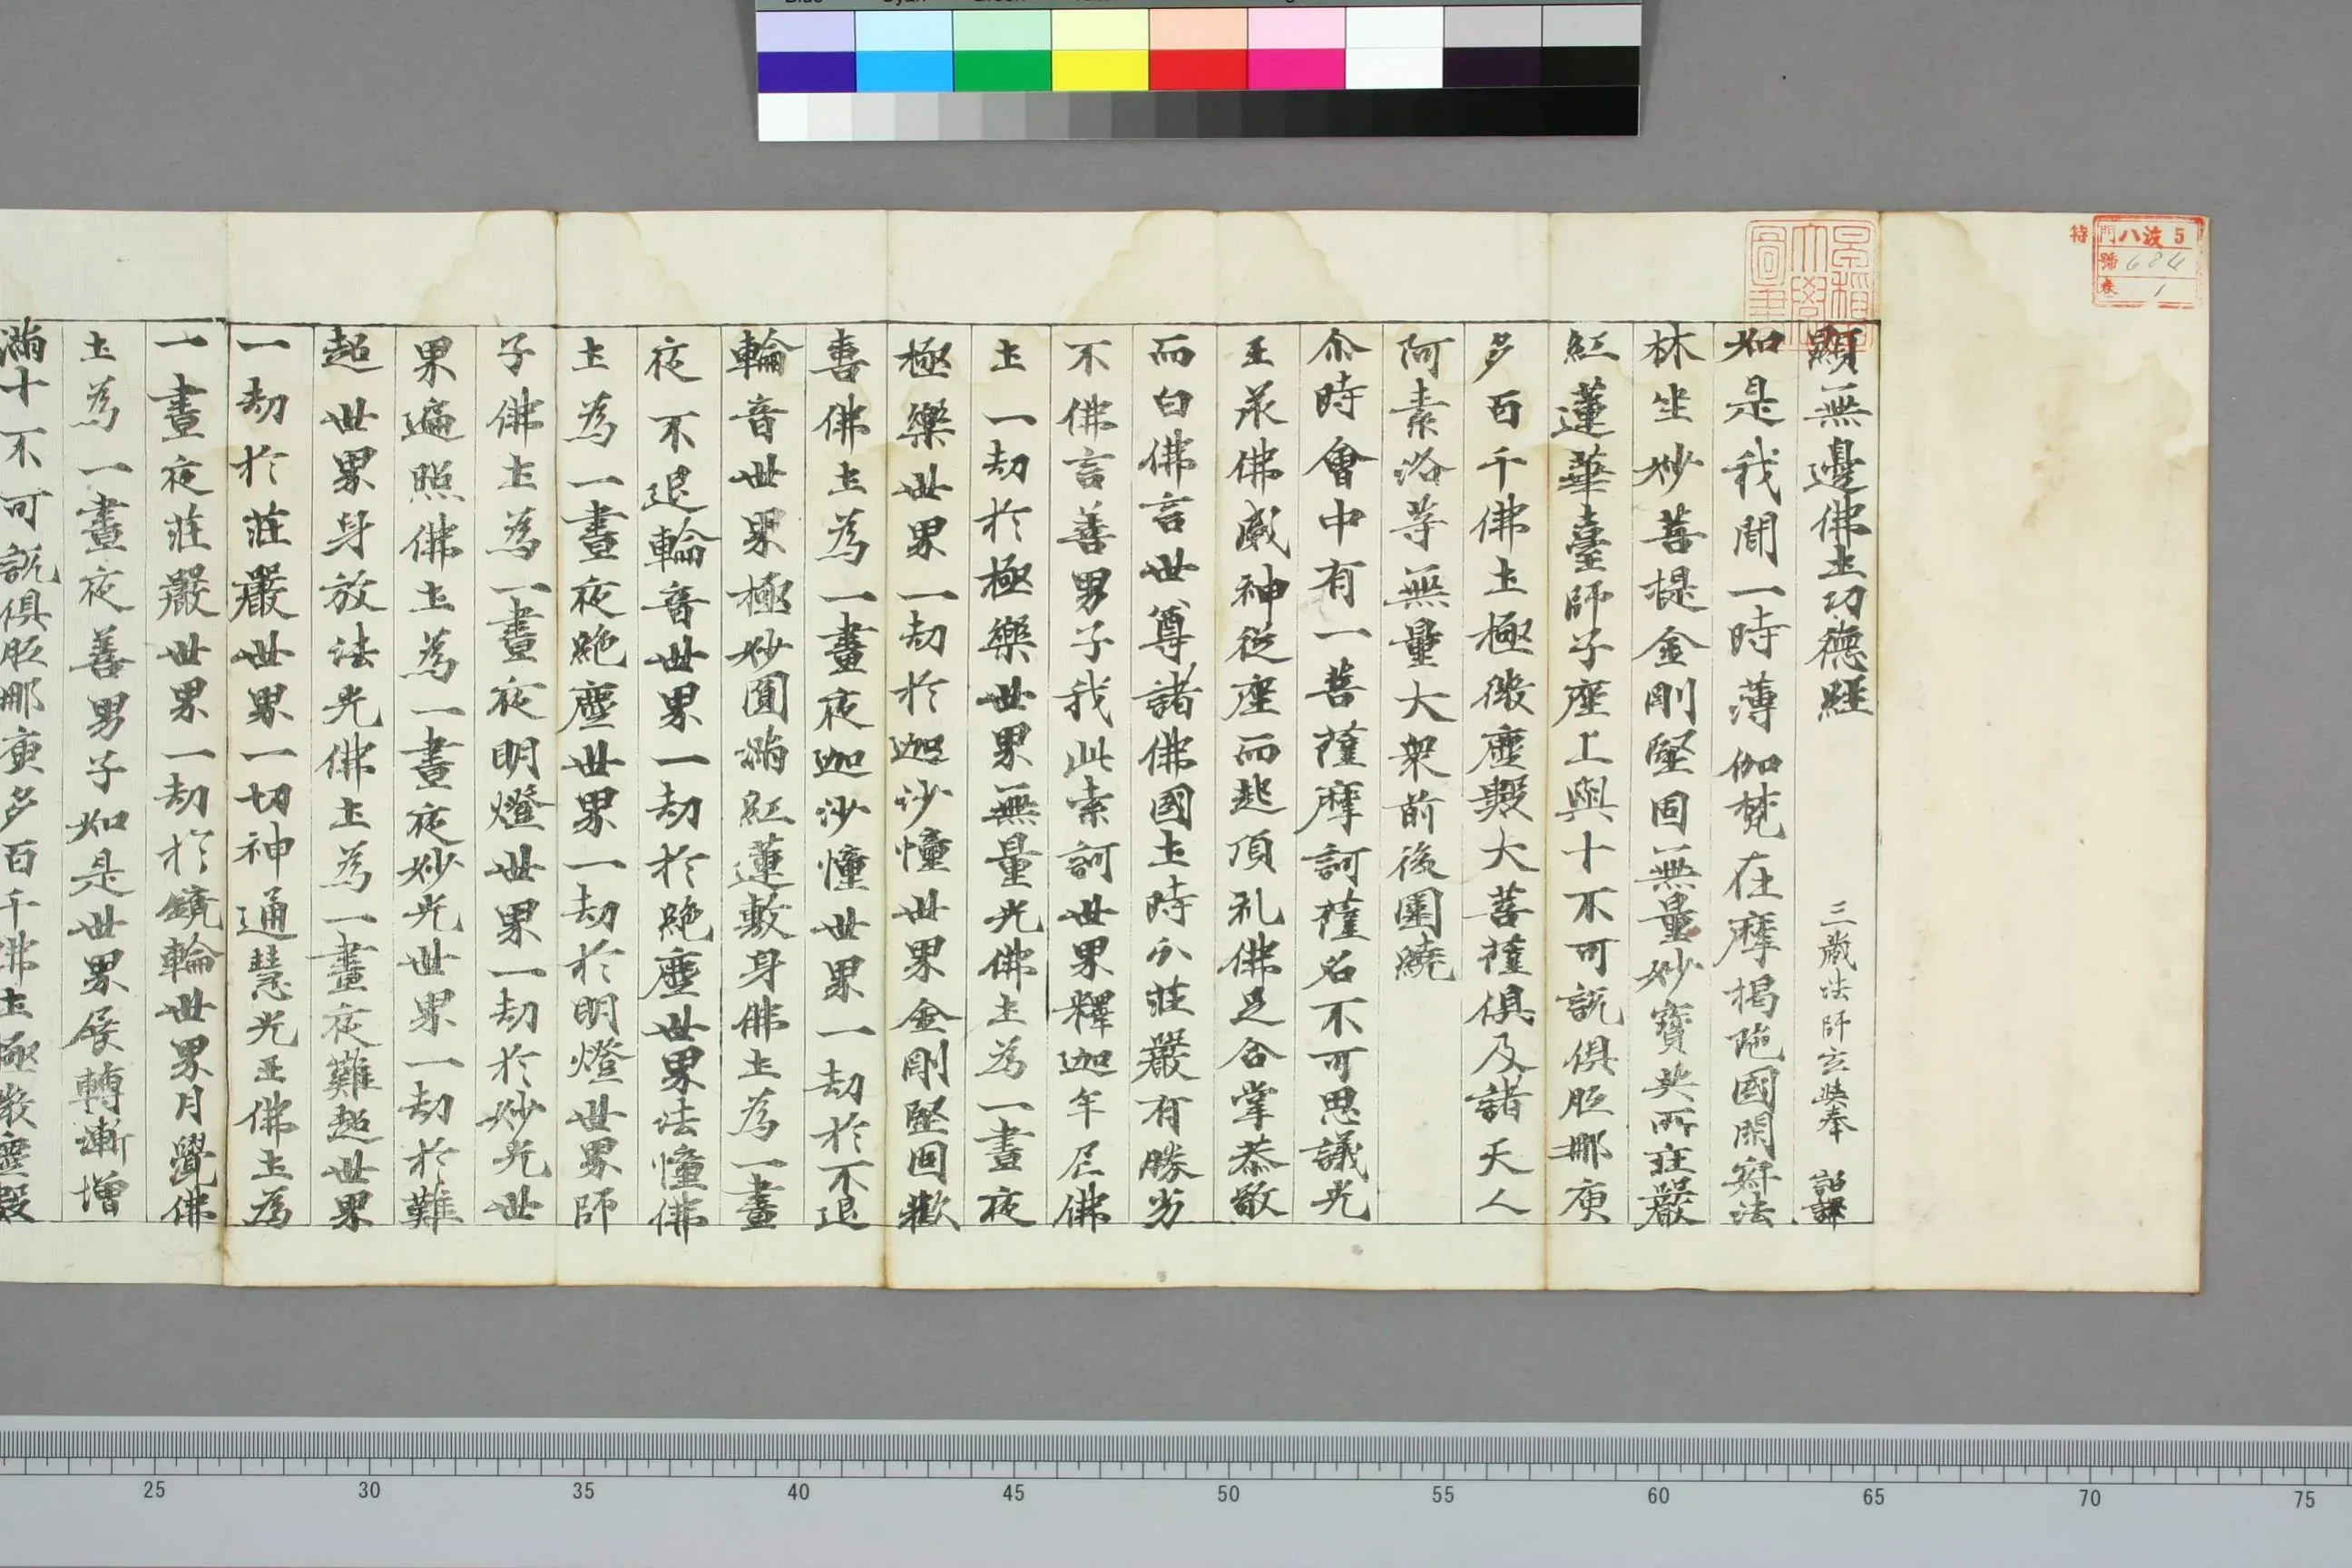 顯無邊佛土功德經 三藏法師玄奘奉 詔譯
如是我聞一時薄伽梵在摩揭陁國閑寂法
林坐妙菩提金剛堅固無量妙寶共所庄嚴
紅蓮華臺師子座上與十不可說俱胝那庾
多百千佛土極微塵數大菩薩俱及諸天人
阿素洛等無量大衆前後圍繞
尒時會中有一菩薩摩訶薩名不可思議光
王承佛威神從座而起頂礼佛足合掌恭敬
而白佛言世尊諸佛國土時分莊嚴有勝劣
不佛言善男子我此索訶世界釋迦牟尼佛
土一劫於極樂世界無量光佛土為一晝夜
極樂世界一劫於迦沙憧世界金剛堅固歡
喜佛土為一晝夜迦沙憧世界一劫於不退
輪音世界極妙圓滿紅蓮敷身佛土為一晝
夜不退輪音世界一劫於絶塵世界法憧佛
土為一晝夜絶塵世界一劫於明燈世界師
子佛土為一晝夜明燈世界一劫於妙光世
界遍照佛土為一晝夜妙光世界一劫於難
超世界身放法光佛土為一晝夜難超世界
一劫於莊嚴世界一切神通慧光王佛土為
一晝夜莊嚴世界一劫於鏡輪世界月覺佛
土為一晝夜善男子如是世界展轉漸增
滿十不可說俱胝那庾多百千佛土極微塵數
特
門 八波 5
號 684
卷 1
25 30 35 40 45 50 55 60 65 70 75